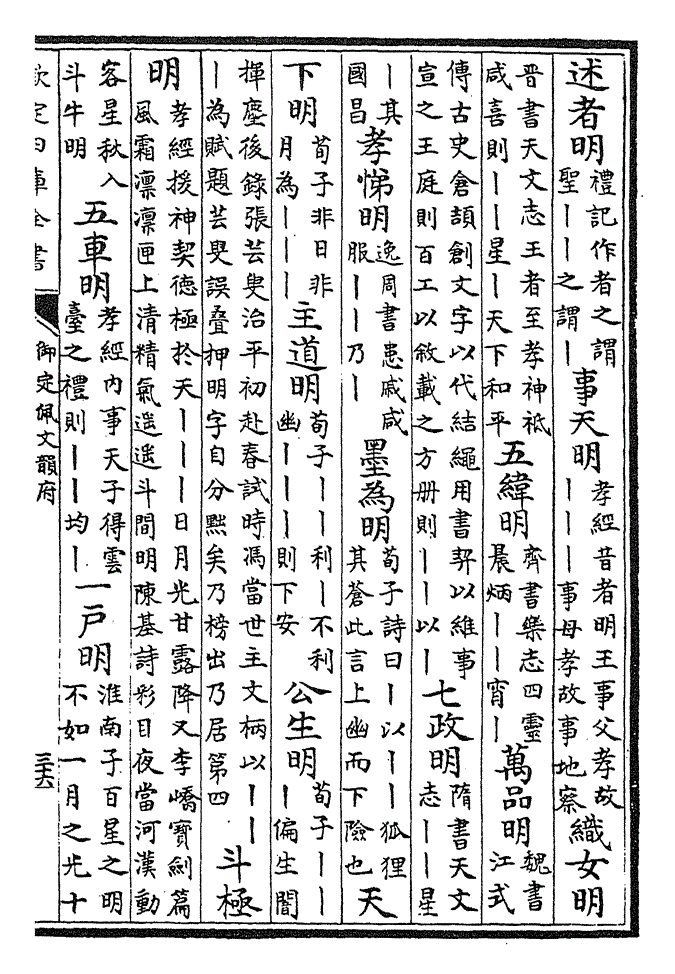 述者明禮記作者之謂聖丨丨之謂丨事天明孝經昔者明王事父孝故丨丨丨事母孝故事地察織女明
晉書天文志王者至孝神祇咸喜則丨丨星丨天下和平五緯明齊書樂志四靈晨炳丨丨宵丨萬品明魏書江式
傳古史倉頡創文字以代結繩用書契以維事宣之王庭則百工以敘載之方册則丨丨以丨七政明隋書天文志丨丨星
丨其國昌孝悌明逸周書患戚咸服丨丨乃丨墨為明荀子詩曰丨以丨丨狐狸其蒼此言上幽而下險也天
下明荀子非日非月為丨丨丨主道明荀子丨丨利丨不利幽丨丨丨則下安公生明荀子丨丨丨偏生闇
揮麈後錄張芸叟治平初赴春試時馮當世主文柄以丨丨丨為賦題芸叟誤叠押明字自分黜矣乃榜出乃居第四斗極
明孝經援神契德極於天丨丨丨日月光甘露降又李嶠寶劍篇風霜凛凛匣上清精氣遥遥斗間明陳基詩彩目夜當河漢動
客星秋入斗牛明五車明孝經内事天子得雲臺之禮則丨丨均丨一戶明淮南子百星之明不如一月之光十
欽定四庫全書
御定佩文韻府
三六